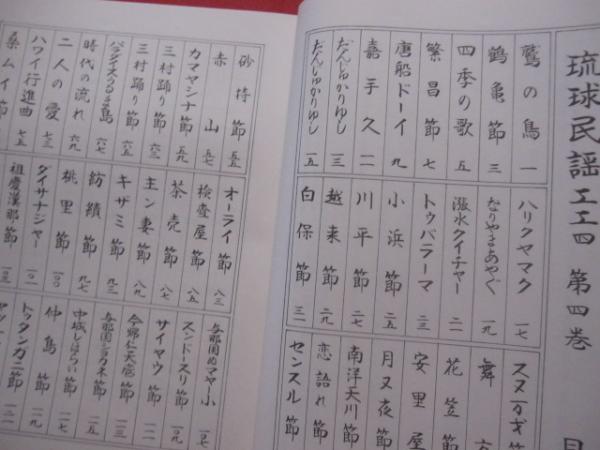 琉球民謡工工四 第四巻 目
鷲の鳥 一
鶴亀節 三
四季の歌 五
繁昌節 七
唐船ドーイ 九
嘉手久 一一
だんじゅかりゆし 一三
だんじゅかりゆし 一五
ハリクヤマク 一七
なりやまあやぐ 一九
漲水クイチャー 二一
トゥバラーマ 二三
小浜節 二五
川平節 二七
越来節 二九
白保節 三一
舞
花笠節
安里屋
月ヌ夜節
南洋大川節
恋語れ節
センスル節
砂持節 五五
赤山 五七
カマヤシナ節 五九
三村踊り節 六三
三村踊り節 六五
パラダイスうるま島 六七
時代の流れ 六九
二人の愛 七三
ハワイ行進曲 七五
桑ムイ節
オーライ節 八三
検査屋節 八五
茶売節 八七
主ン妻節 八九
キザミ節 九三
紡績節 九七
桃里節 一〇〇
ダイサナジャー 一〇一
祖慶漢那節 一〇三
与那国ぬマヤー小 一〇七
スンドースリ節 一〇九
サイマウ節 一一一
今帰仁天底節 一一三
与那国ションカネ節 一一五
中城しはらい節 一一七
仲島節 一一九
トゥタンガニ節 一二一